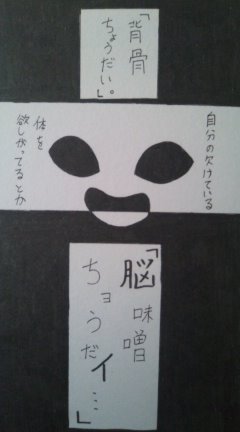 「背骨
ちょうだい。」
自分の欠けている
体を
欲しがってるとか
「脳味噌
ちょうだイ…」